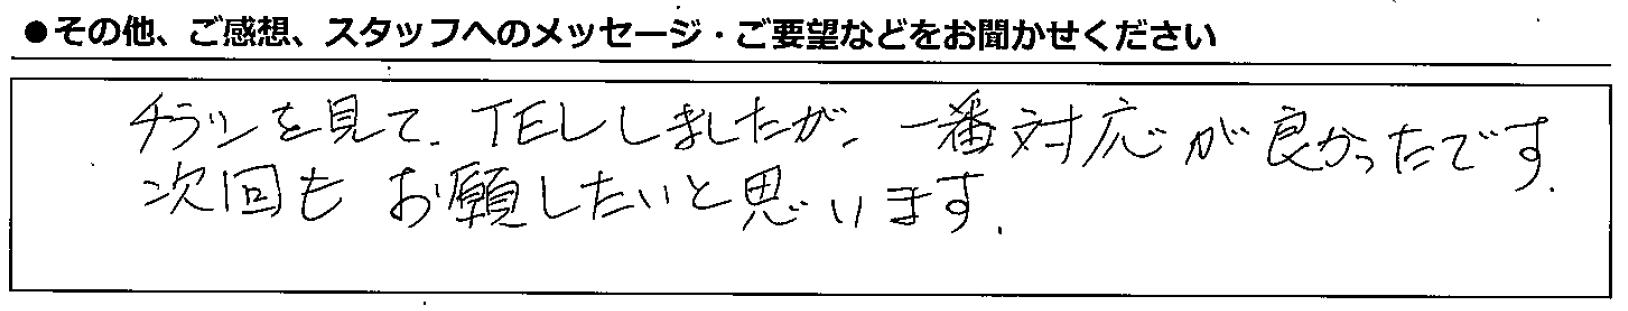 ●その他、ご感想、スタッフへのメッセージ・ご要望などをお聞かせください
チラシを見て、TELしましたが、一番対応が良かったです.
次回もお願いしたいと思います.